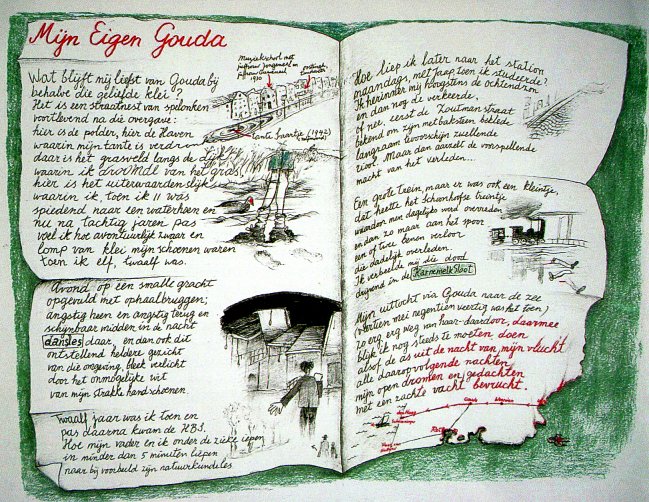 Mijn Eigen Gouda
Wat blijft mij liefst van Gouda bij
behalve die geliefde klei?
Het is een straatnest van spelonken
voortlevend na die overgave:
hier is de polder, hier de Haven
waarin mijn tante is verdronken
daar is het grasveld langs de dijk
waarin ik droomde van het gras
hier is het uiterwaardenslijk
waarin ik, toen ik 11 was
spiedend naar een waterhoen en
nu na tachtig jaren pas
voel ik hoe avontuurlijk zwaar en
lomp van klei mijn schoenen waren
toen ik elf, twaalf was.
Muziekschool met
1930
tante Saartje
Avond op een smalle gracht
opgevuld met ophaalbruggen;
angstig heen en angstig terug en
schijnbaar midden in de nacht
dansles daar, en dan ook dit
ontstellend heldere gezicht
van die omgeving, bleek verlicht
door het onmogelijke wit
van mijn strakke handschoenen.
Twaalf jaar was ik toen en
pas daarna kwam de HBS.
Hoe mijn vader en ik onder de zieke iepen
in minder dan 5 minuten liepen
naar bij voorbeeld zijn natuurkundeles
Hoe liep ik later naar het station
maandags, met Jaap, toen ik studeerde?
Ik herinner mij hoogstens de ochtendzon
en dan nog de verkeerde,
of nee, eerst de Zoutman straat
bekend om zijn met baksteen beklede
langzaam levoorschijn zwellende
riool. Maar dan aarzelt de voorspellende
macht van het verleden...
Een grote trein, maar er was ook een kleintje,
dat heette het Schoonhofse treintje
waardoor men dagelijks werd overreden
en dan zo maar aan het spoor
een of twee benen verloor
die dadelijk overleden.
Ik verbeelde mij die dood
drijvend in de Karnemelksloot
Mijn uittocht via Gouda naar de zee
(veertien mei negentien veertig was het toen)
zo erg erg weg van haar-daardoor, daarmee
blijk ik nog steeds te moeten doen
alsof de as uit de nacht van mijn vlucht
alle daarop volgende nachten
mijn open dromen en gedachten
met een zachte vacht bevrucht.
Gouda
Woerden